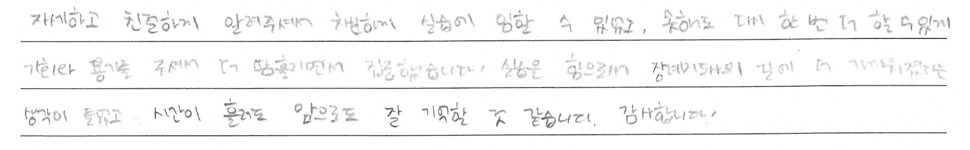 자세하고 친절하게 알려주셔서 차분하게 실습에 임할 수 있었고, 못해도 다시 한 번 더 할 수 있게
기회와 용기를 주셔서 더 땀흘리면서 집중했습니다! 실습을 함으로써 장례지도사의 길에 더 가까워졌다는
생각이 들었고 시간이 흘러도 앞으로도 잘 기억할 것 같습니다. 감사합니다!